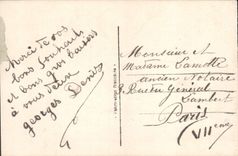 Merci de vos
bons souhaits
et bons gros baisers
à vous deux
Georges Denise
Monsieur et
Madame Lamotte
ancien Notaire
8 Rue du Général
Lambert
Paris
VII eme